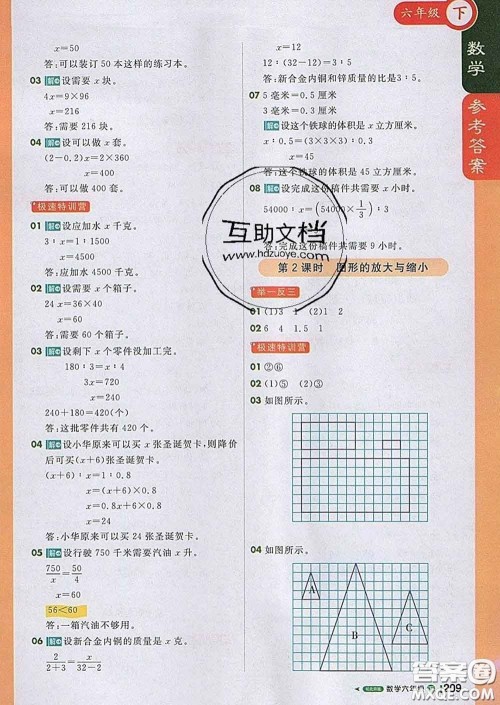 六年级 下
数学
参考答案
x=50
答:可以装订 50 本这样的练习本。
03 解 设需要 x 块。
4x=9×96
x=216
答:需要 216 块。
04 解 设可以做 x 套。
(2-0.2)x=2×360
x=400
答:可以做 400 套。
极速特训营
01 解 设应加水 x 千克。
3∶x=1∶1500
x=4500
答:应加水 4500 千克。
02 解 设需要 x 个箱子。
24x=36×40
x=60
答:需要 60 个箱子。
03 解 设剩下 x 个零件没加工完。
180∶3=x∶4
3x=720
x=240
240+180=420(个)
答:这批零件共有 420 个。
04 解 设小华原来可以买 x 张圣诞贺卡,则降价
后可买(x+6)张圣诞贺卡。
x=(x+6)×0.8
x=0.8x+6×0.8
x=24
答:小华原来可以买 24 张圣诞贺卡。
05 解 设行驶 750 千米需要汽油 x 升。
750/x=50/4
x=60
56<60
答:一箱汽油不够用。
06 解 设新合金内铜的质量是 x 克。
2/(2+3)=x/(32-2)
x=12
12∶(32-12)=3∶5
答:新合金内铜和锌质量的比是3∶5。
07 5 毫米=0.5 厘米
3 毫米=0.3 厘米
解 设这个铁球的体积是 x 立方厘米。
x∶0.5=27∶0.3
x=45
答:这个铁球的体积是 45 立方厘米。
08 解 设完成这份稿件共需要 x 小时。
54000∶x=(54000×1/3)∶3
x=9
答:完成这份稿件共需要 9 小时。
第 2 课时 图形的放大与缩小
举一反三
01 (1)3 1 (2)1 2
02 6 4 1.5 1
极速特训营
01 ②⑥
02 (1)⑤ (2)③
03 如图所示。
04 如图所示。
A
B
C
互助文档
www.hdzuoye.com
数学六年级 下 209
答案圈